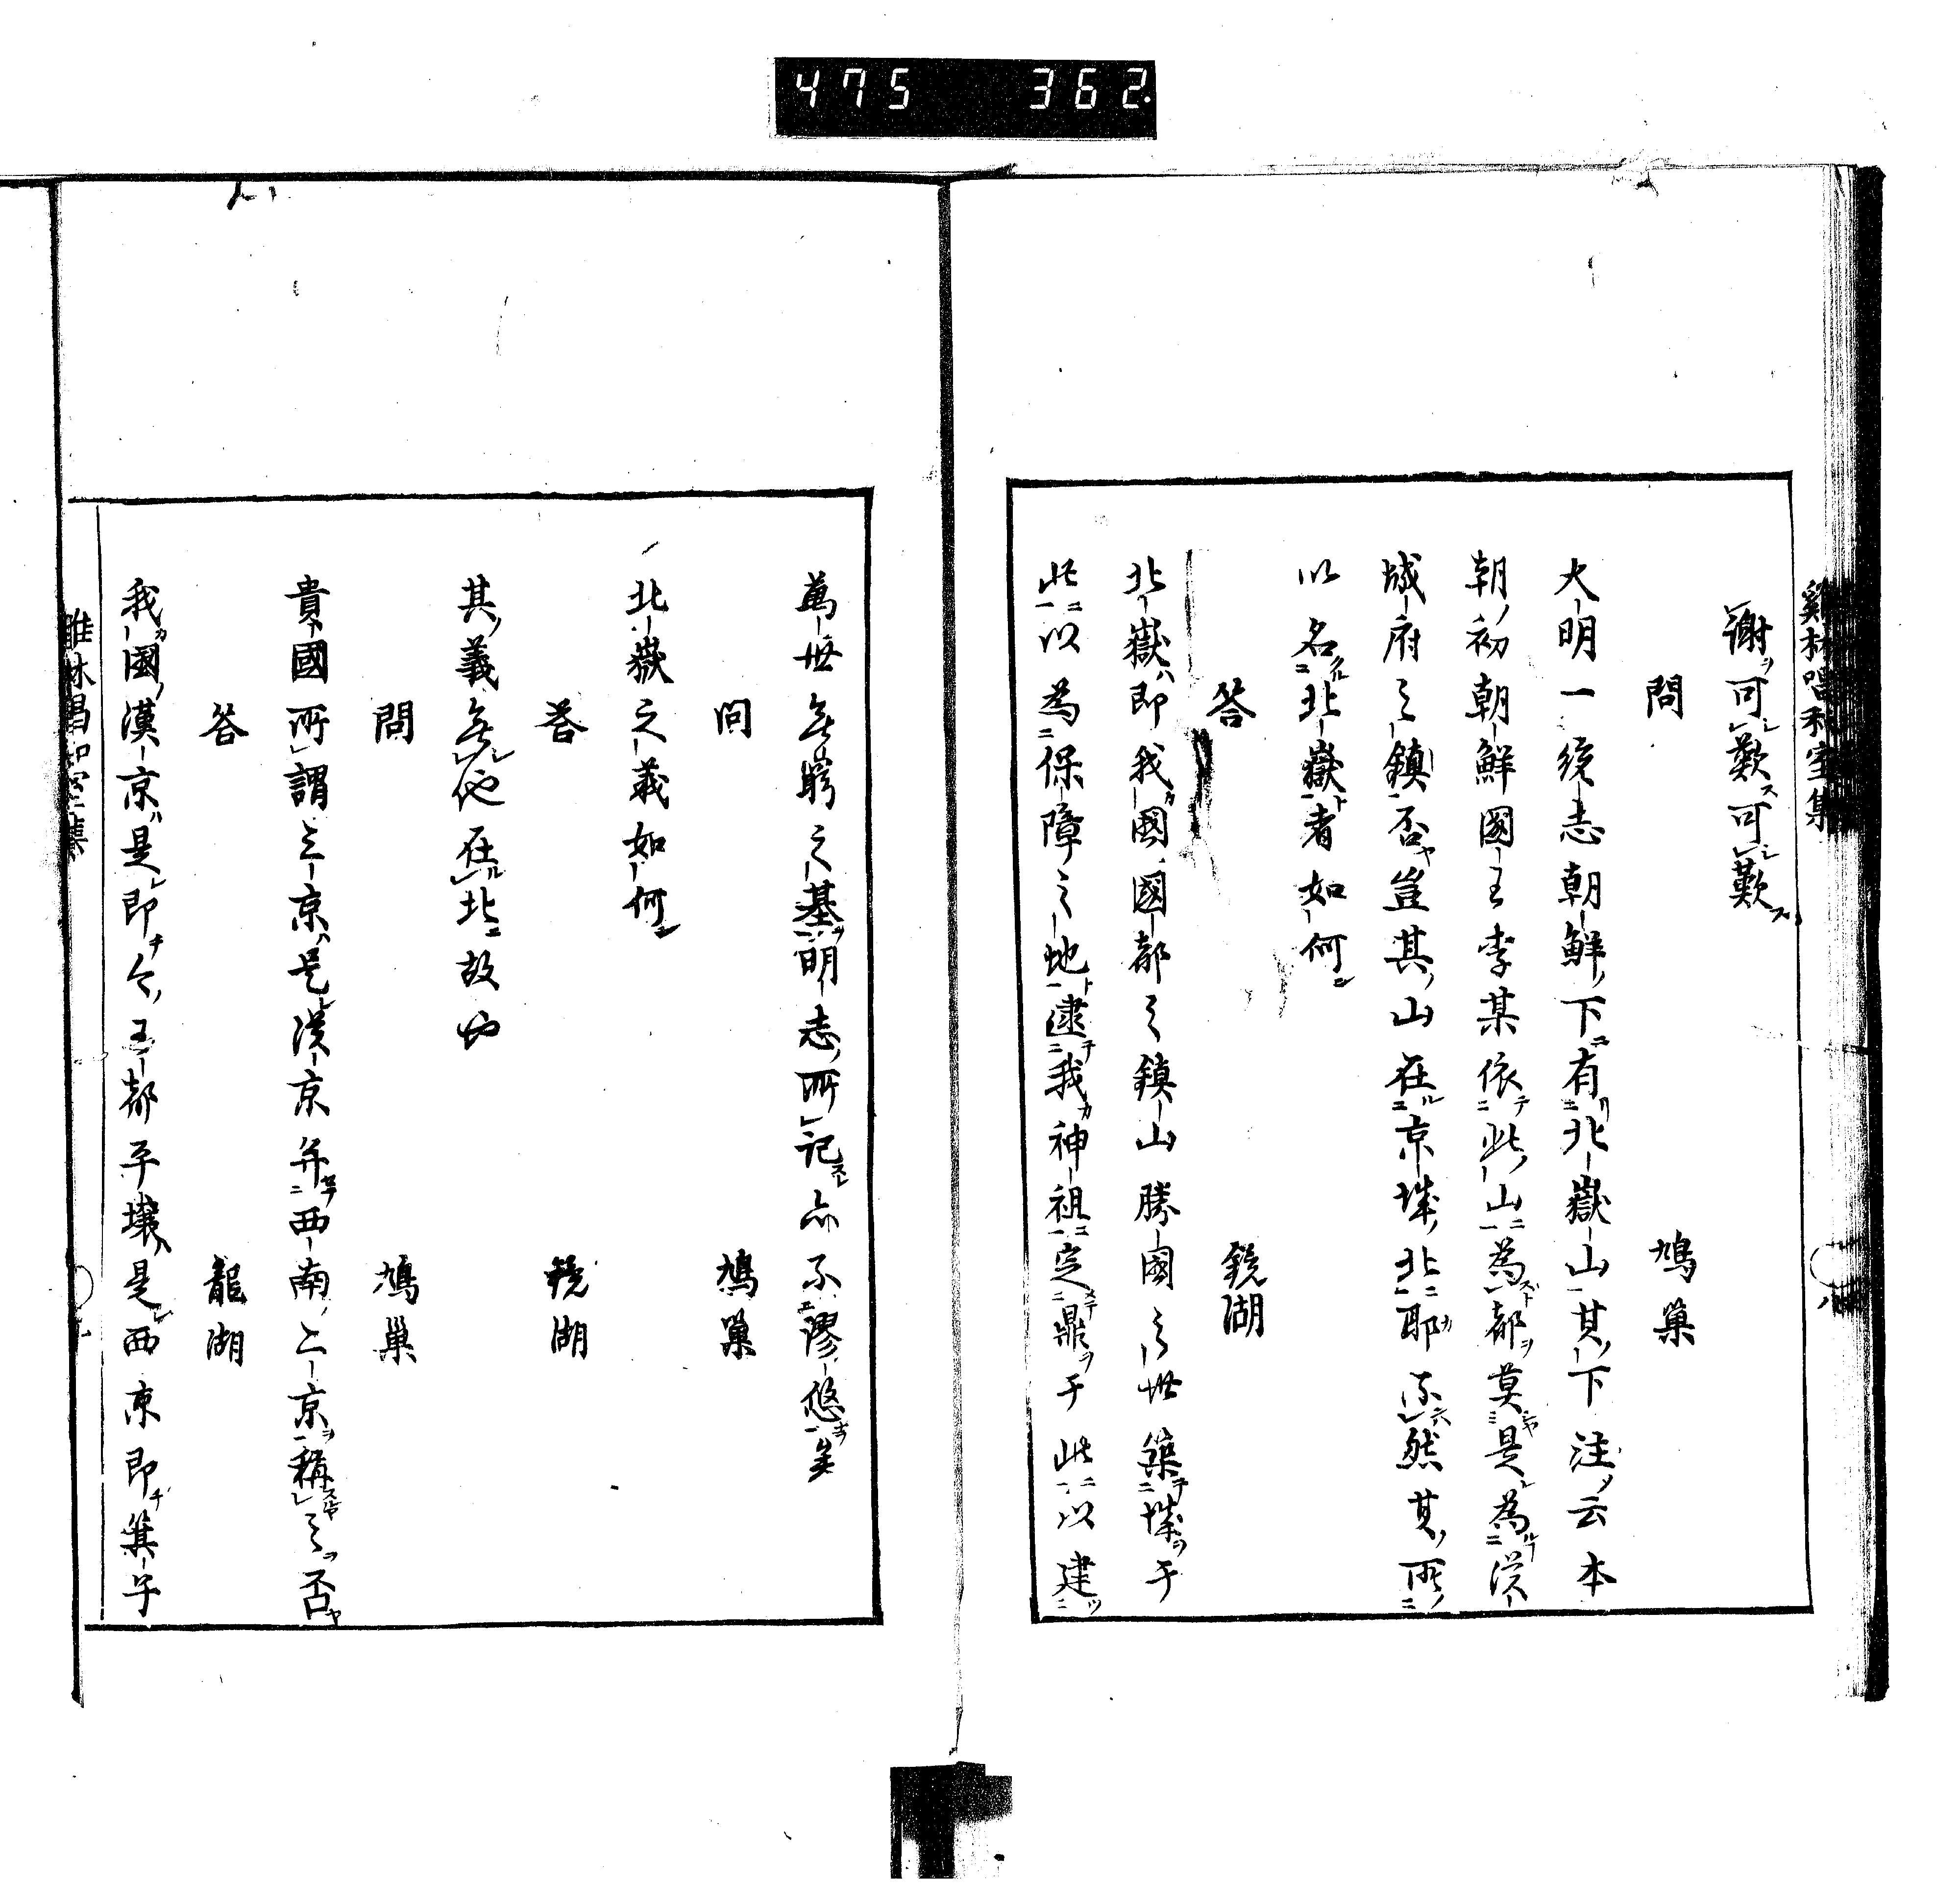 475 362
謝可歎可歎
問 鳩巢
大明一統志朝鮮下有北嶽山其下注云本
朝初朝鮮國王李某依此山為都莫是為漢
城府之鎮否豈其山在京城北耶不然其所
以名北嶽者如何
答 鏡湖
北嶽即我國國都之鎮山勝國之世築城于
此以為保障之地逮我神祖定鼎于此以建
萬世無窮之基明志所記亦不謬悠矣
問 鳩巢
北嶽之義如何
答 鏡湖
其義無他在北故也
問 鳩巢
貴國所謂三京是漢京并西南二京稱之否
答 龍湖
我國漢京是即今王都平壤是西京即箕子